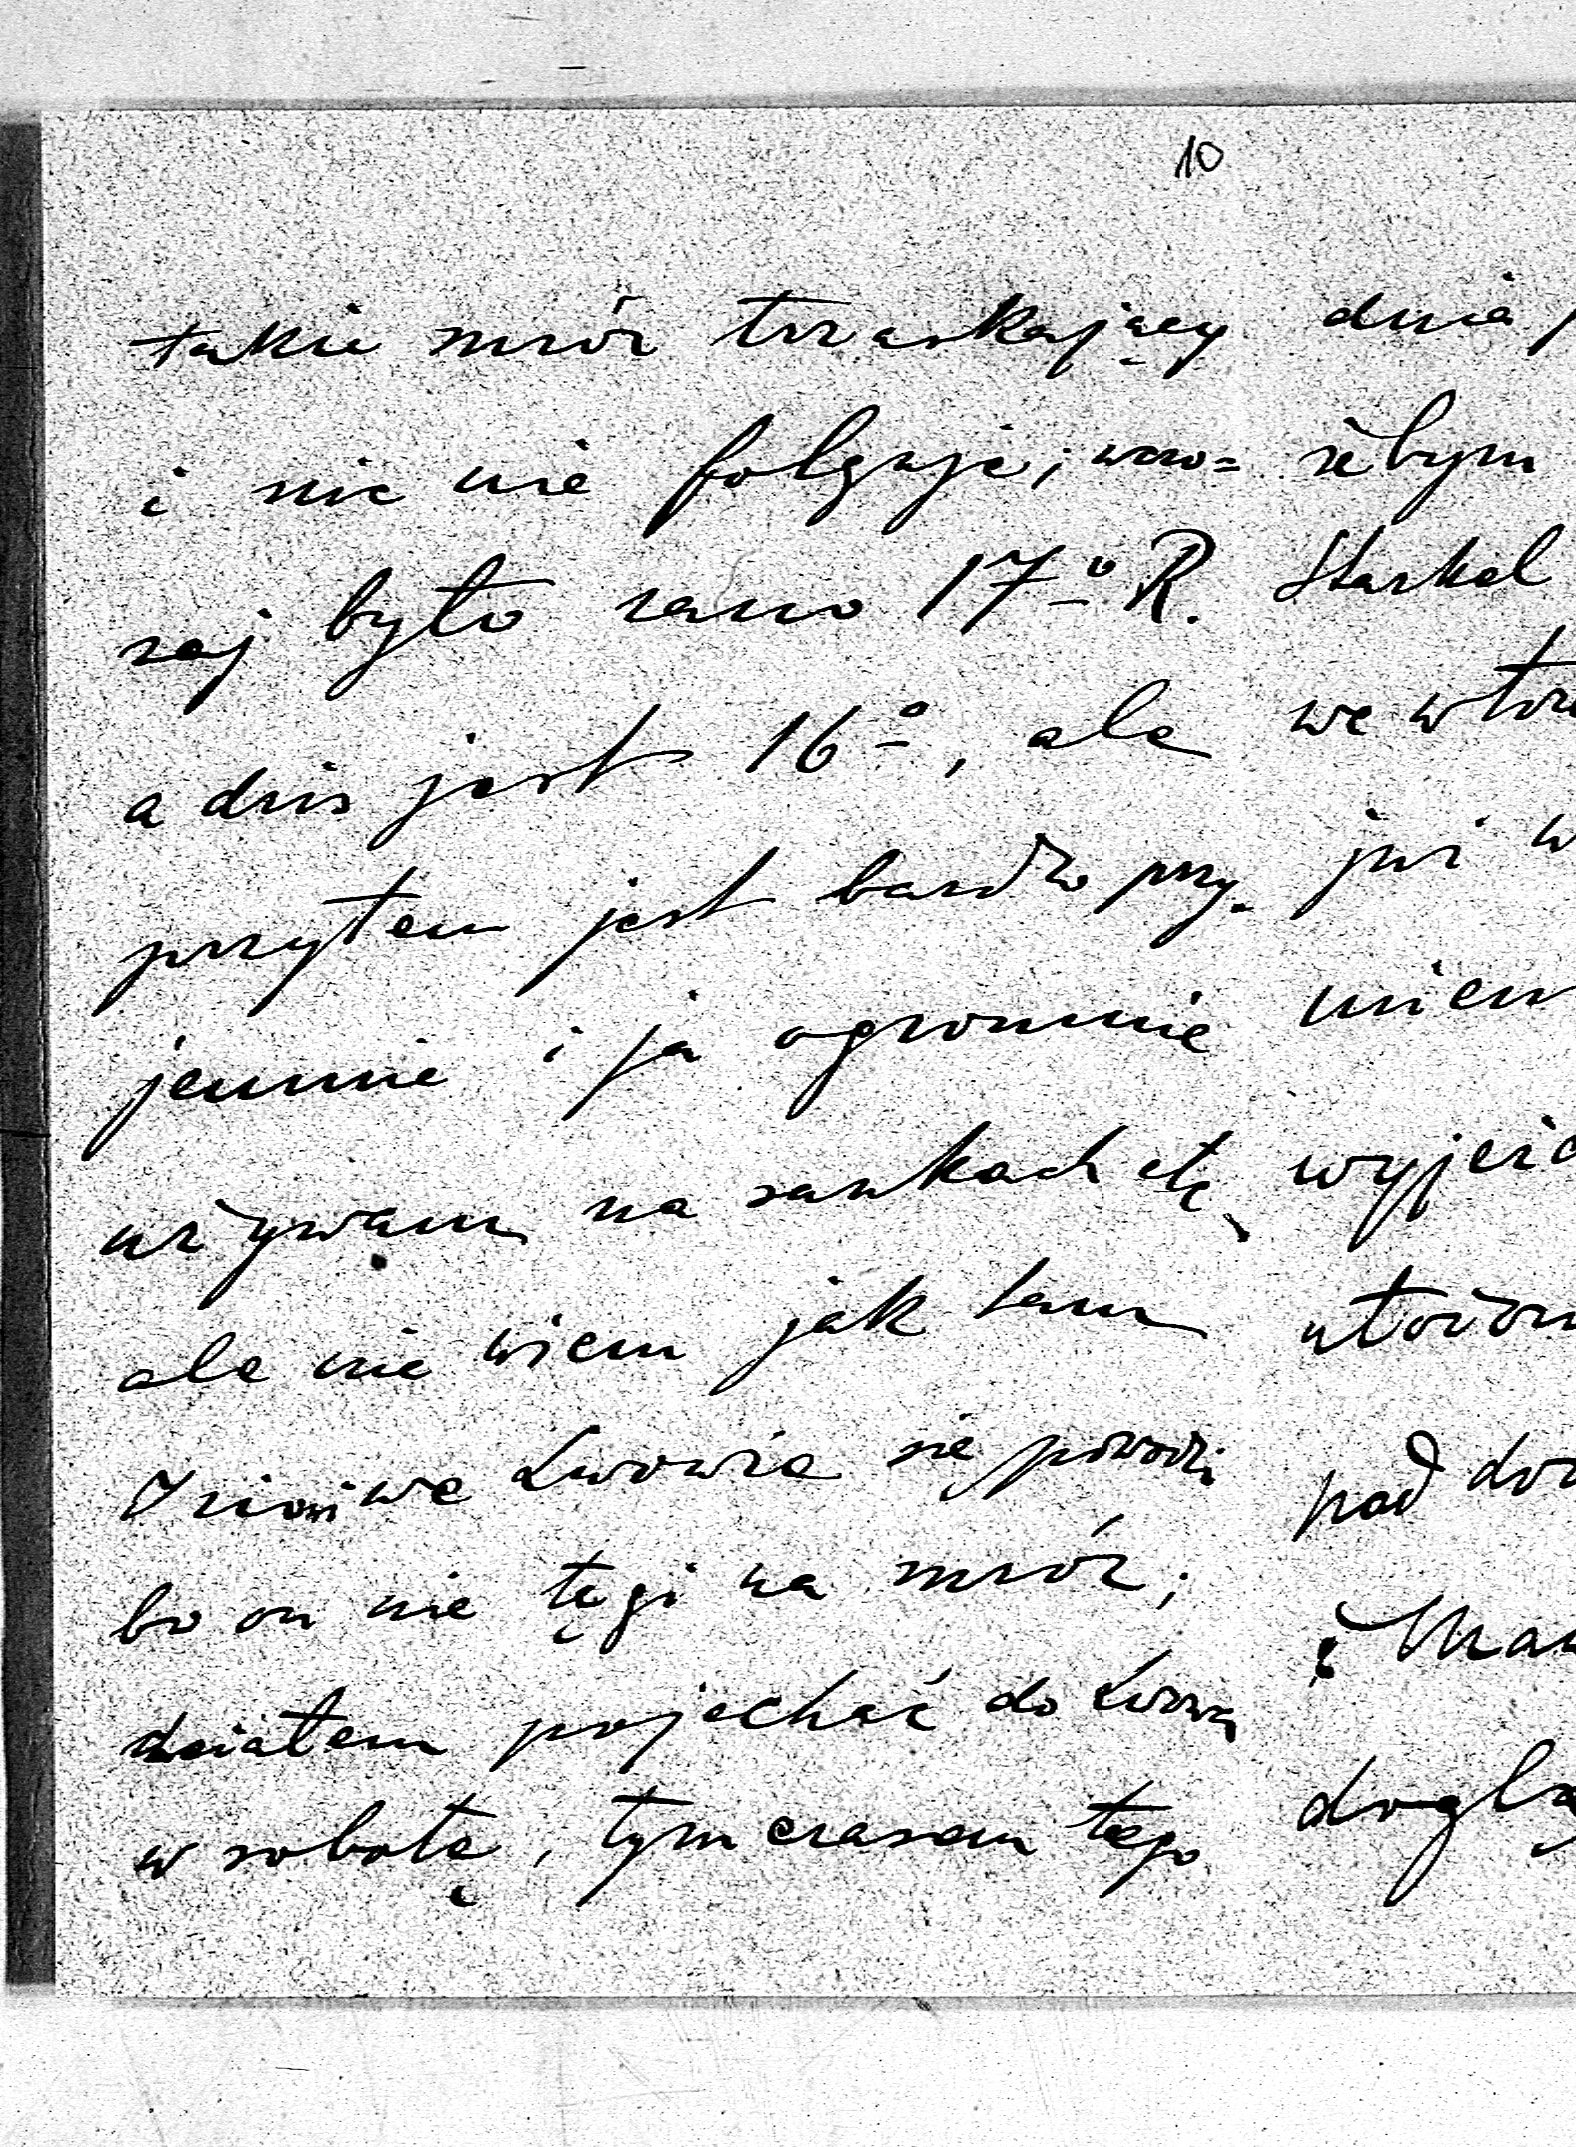 10
takie mróz trzaskający
i nic nie folguje; wczo=
raj było rano 17º R.
a dziś jest 16º, ale
przytem jest bardzo przy-
jemnie i ja ogromnie
używam na sankach
ale nie wiem jak tam
we Lwowie się powodzi
bo on nie tęgi na mróz;
pojechać do Lwowa
w sobotę, tymczasem tego
dnia
żebym
Starkel
we wtor
już w
wyjeż
pod
i
doglą